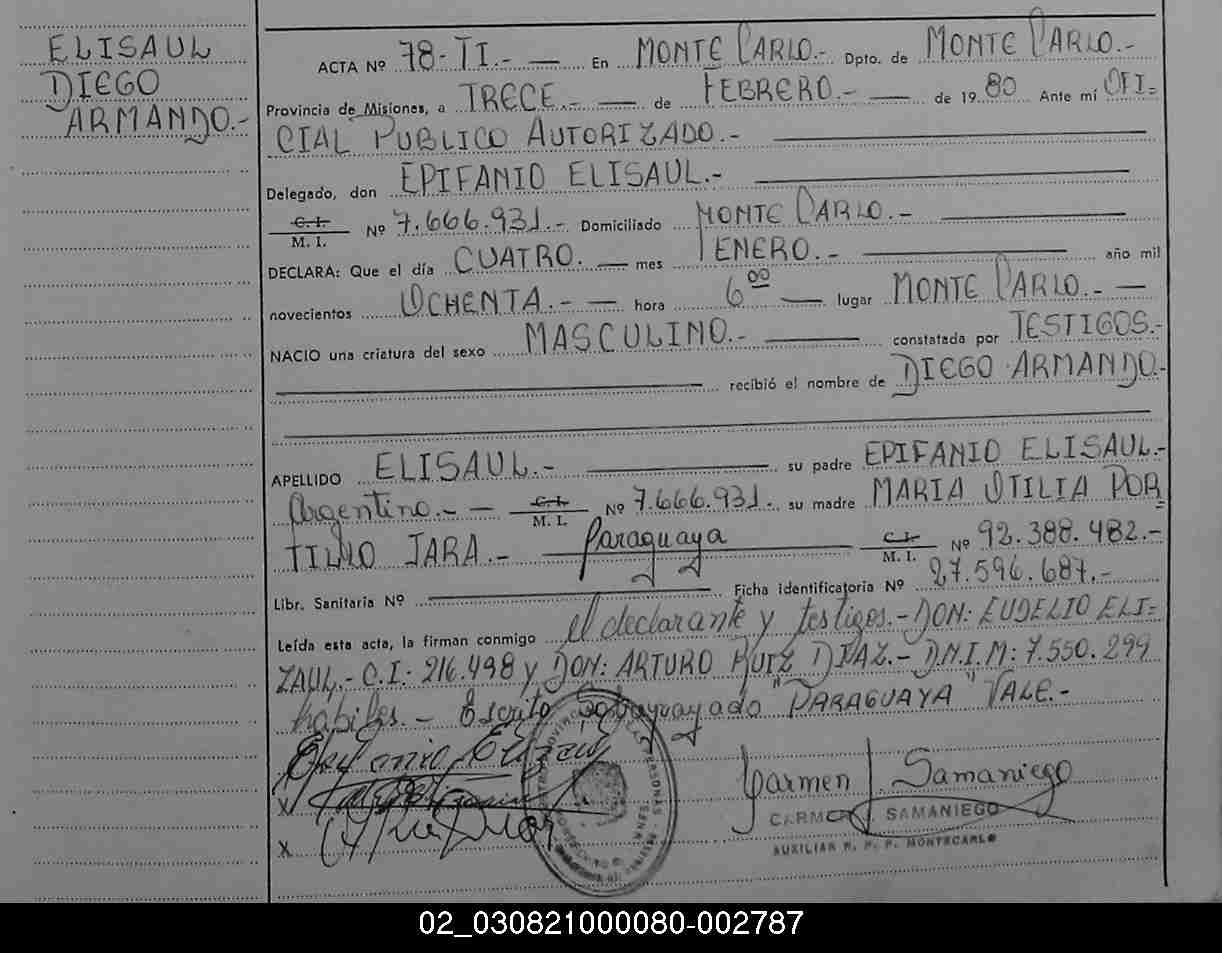 ELISAUL
DIEGO
ARMANDO.-
ACTA Nº 78-TI.- — En MONTE CARLO.- Dpto. de MONTE CARLO.-
Provincia de Misiones, a TRECE.- — de FEBRERO.- — de 1980 Ante mí OFI=
CIAL PUBLICO AUTORIZADO.-
Delegado, don EPIFANIO ELISAUL.-
C. I.
M. I. Nº 7.666.931.- Domiciliado MONTE CARLO.-
DECLARA: Que el día CUATRO. — mes ENERO.- año mil
novecientos OCHENTA.- — hora 6 00 — lugar MONTE CARLO.- —
NACIO una criatura del sexo MASCULINO.- constatada por TESTIGOS.-
recibió el nombre de DIEGO ARMANDO.-
APELLIDO ELISAUL.- su padre EPIFANIO ELISAUL.-
Argentino.- — C. I.
M. I. Nº 7.666.931. su madre MARIA OTILIA POR=
TILLO JARA.- Paraguaya C. I.
M. I. Nº 92.388.482.-
Libr. Sanitaria Nº Ficha identificatoria Nº 27.596.687.-
Leída esta acta, la firman conmigo el declarante y testigos.- DON: EUDELIO ELI=
ZAUL.- C.I: 216.498 y DON: ARTURO RUIZ DIAZ.- D.N.I.M: 7.550.299
habiles.- Escrito Sobrayado "PARAGUAYA" VALE.-
Epifanio
X
X
Carmen J Samaniego
CARMEN J. SAMANIEGO
AUXILIAR R. P. P. MONTECARLO
02_030821000080-002787